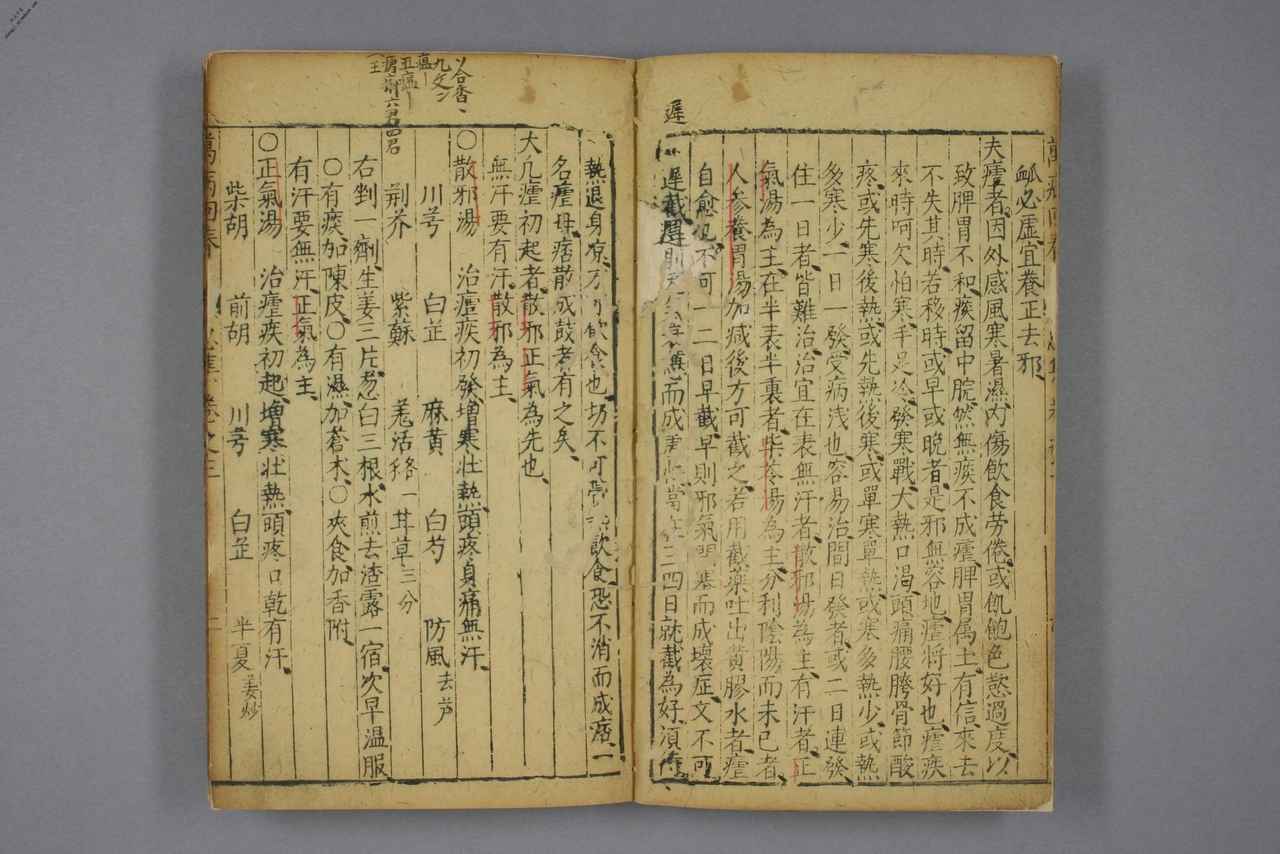 遲
衂必虛宜養正去邪
夫瘧者因外感風寒暑濕內傷飲食劳倦或飢飽色慾過度以
致脾胃不和痰留中脘然無痰不成瘧脾胃属土有信來去
不失其時若移時或早或晚者是邪無容地瘧将好也瘧疾
來時呵欠怕寒手足冷發寒戰大熱口渴頭痛腰胯骨節酸
疼或先寒後熱或先熱後寒或單寒單熱或寒多熱少或熱
多寒少一日一發受病浅也容易治間日發者或二日連發
住一日者皆難治治宜在表無汗者散邪湯為主有汗者正
氣湯為主在半表半裏者柴苓湯為主分利陰陽而未已者
人参養胃湯加减後方可截之若用截藥吐出黄膠水者瘧
自愈也不可一二日早截早則邪氣閉塞而成壞症又不可
遲截遲則
而成
當在三四日就截為好須
熱退身凉方可飲食也切不可
飲食恐不消而成痞一
名瘧母痞散成鼓者有之矣
大凡瘧初起者散邪正氣為先也
無汗要有汗散邪為主
〇散邪湯 治瘧疾初發增寒壮熱頭疼身痛無汗
川芎 白芷 麻黄 白芍 防風去芦
荆芥 紫蘇 羌活 各一 甘草三分
右剉一劑生姜三片葱白三根水煎去渣露一宿次早温服
〇有痰加陳皮〇有濕加蒼木〇夾食加香附
有汗要無汗正氣為主
〇正氣湯 治瘧疾初起增寒壮熱頭疼口乾有汗
柴胡 前胡 川芎 白芷 半夏姜炒
萬病回春 卷之三